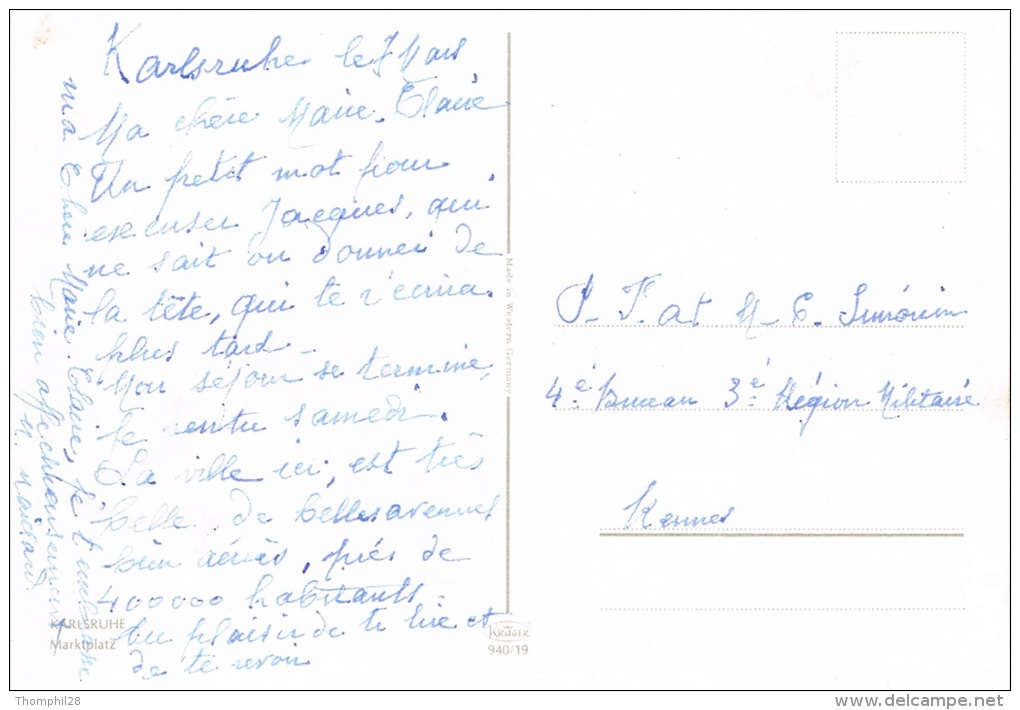 Karlsruhe le 7 Mars
Ma chère Marie-Claire
Un petit mot pour
excuser Jacques, qui
ne sait ou donner de
la tête, qui te r'écrira
plus tard -
Mon séjour se termine,
Je rentre samedi.
La ville ici, est très
belle, de belles avenues
bien aérées, près de
400000 habitants.
Au plaisir de te lire et
de te revoir
ma chere Marie-Claire, je t'embrasse
bien affectueusement
KARLSRUHE
Marktplatz
Made in Western Germany
KRÜGER
940/19
P. F. at M- C-
4è Bureau 3è Région Militaire
Rennes
Thomphil28
www.delcampe.net